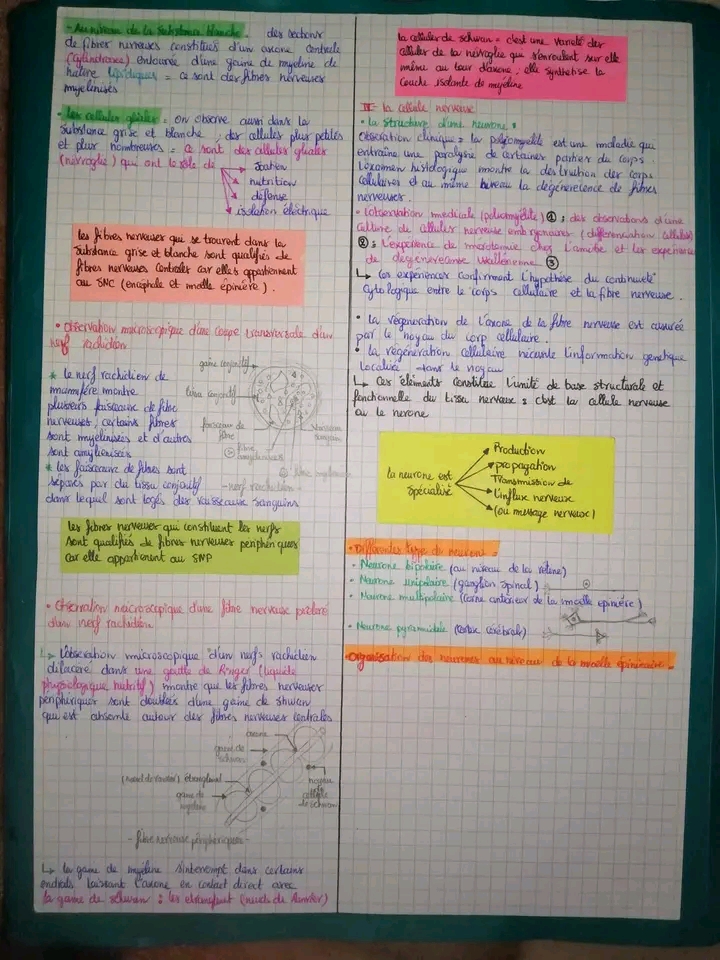 - Au niveau de la substance blanche : des sections
de fibres nerveuses constitués d'un axone centrale
(cylindraxe) entourée d'une gaine de myéline de
natere lipidiques = ce sont des fibres nerveuses
myelinisés
• les cellules gliales = on observe aussi dans la
substance grise et blanche, des cellules plus petites
et plus nombreuses = ce sont des cellules gliales
(nevroglie) qui ont le rôle de
soutien
nutrition
défense
isolation électrique
les fibres nerveuses qui se trouvent dans la
substance grise et blanche sont qualifiés de
fibres nerveuses centrales car elles appartiennent
au SNC (encéphale et moelle épinière).
• Observation macroscopique d'une coupe transversale d'un
nerf rachidien
gaine conjonctif
tissu conjonctif
faisceau de
fibre
vaisseau
sanguin
- nerf rachidien -
* le nerf rachidien de
mamifère montre
plusieurs faisceaux de fibre
nerveuses, certains fibres
sont myélinisées et d'autres
sont amyélinisées
* les faisceaux de fibres sont
séparés par du tissu conjonctif
dans lequel sont logés des vaisseaux sanguins
les fibres nerveuses qui constituent les nerfs
sont qualifiés de fibres nerveuses periphériques
car elle appartiennent au SNP
• Observation microscopique d'une fibre nerveuse
d'un nerf rachidien
↳ L'observation microscopique d'un nerfs rachidien
dilacéré dans une goutte de Ringer (liquide
physiologique nutritif) montre que les fibres nerveuses
peripheriques sont doublées d'une gaine de shwan
qui est absente autour des fibres nerveuses centrales
axone
gaine de
schwan
(nœud de ranvier) étranglement
gaine de
myeline
noyau
de
cellule
de schwan
- fibre nerveuse périphériques -
↳ la gaine de myéline s'interrompt dans certains
endroits laissant l'axone en contact direct avec
la gaine de schwan : les (nœuds de Ranvier)
la cellules de schwan = c'est une varieté des
cellules de la nevroglie qui s'enroulent sur elle
même au tour d'axone, elle synthetise la
couche isolante de myéline
la cellule nerveuse
• la structure d'une neurone :
Observation clinique = la poliomyélite est une maladie qui
entraîne une paralysie de certaines parties du corps.
L'examen histologique montre la destruction des corps
cellulaires et au même niveau la dégénérescence de fibres
nerveuses.
• L'observation medicale (poliomyélite) ① ; des observations d'une
culture de cellules nerveuse embryonnaires (differenciation cellulaire)
② ; L'experience de merotomie chez l'amibe et les expériences
de degenerescence Wallérienne ③
↳ les expériences confirment l'hypothèse du continuité
cytologique entre le corps cellulaire et la fibre nerveuse.
• la régénération de l'axone de la fibre nerveuse est assurée
par le noyau du corp cellulaire.
• la régénération cellulaire nécessite l'information genetique
localisé dans le noyau
↳ Ces éléments constitue l'unité de base structurale et
fonctionnelle du tissu nerveux : c'est la cellule nerveuse
ou le nerone
la neurone est
spécialisé
Production
propagation
Transmission de
L'influx nerveux
(ou message nerveux)
• Différentes type de neurone =
• Neurone bipolaire (au niveau de la rétine)
• Neurone unipolaire (ganglion spinal)
• Neurone multipolaire (corne antérieur de la moelle épinière)
• Neurone pyramidale (cortex cérébrale)
• Organisation des neurones au niveau de la moelle épinière =